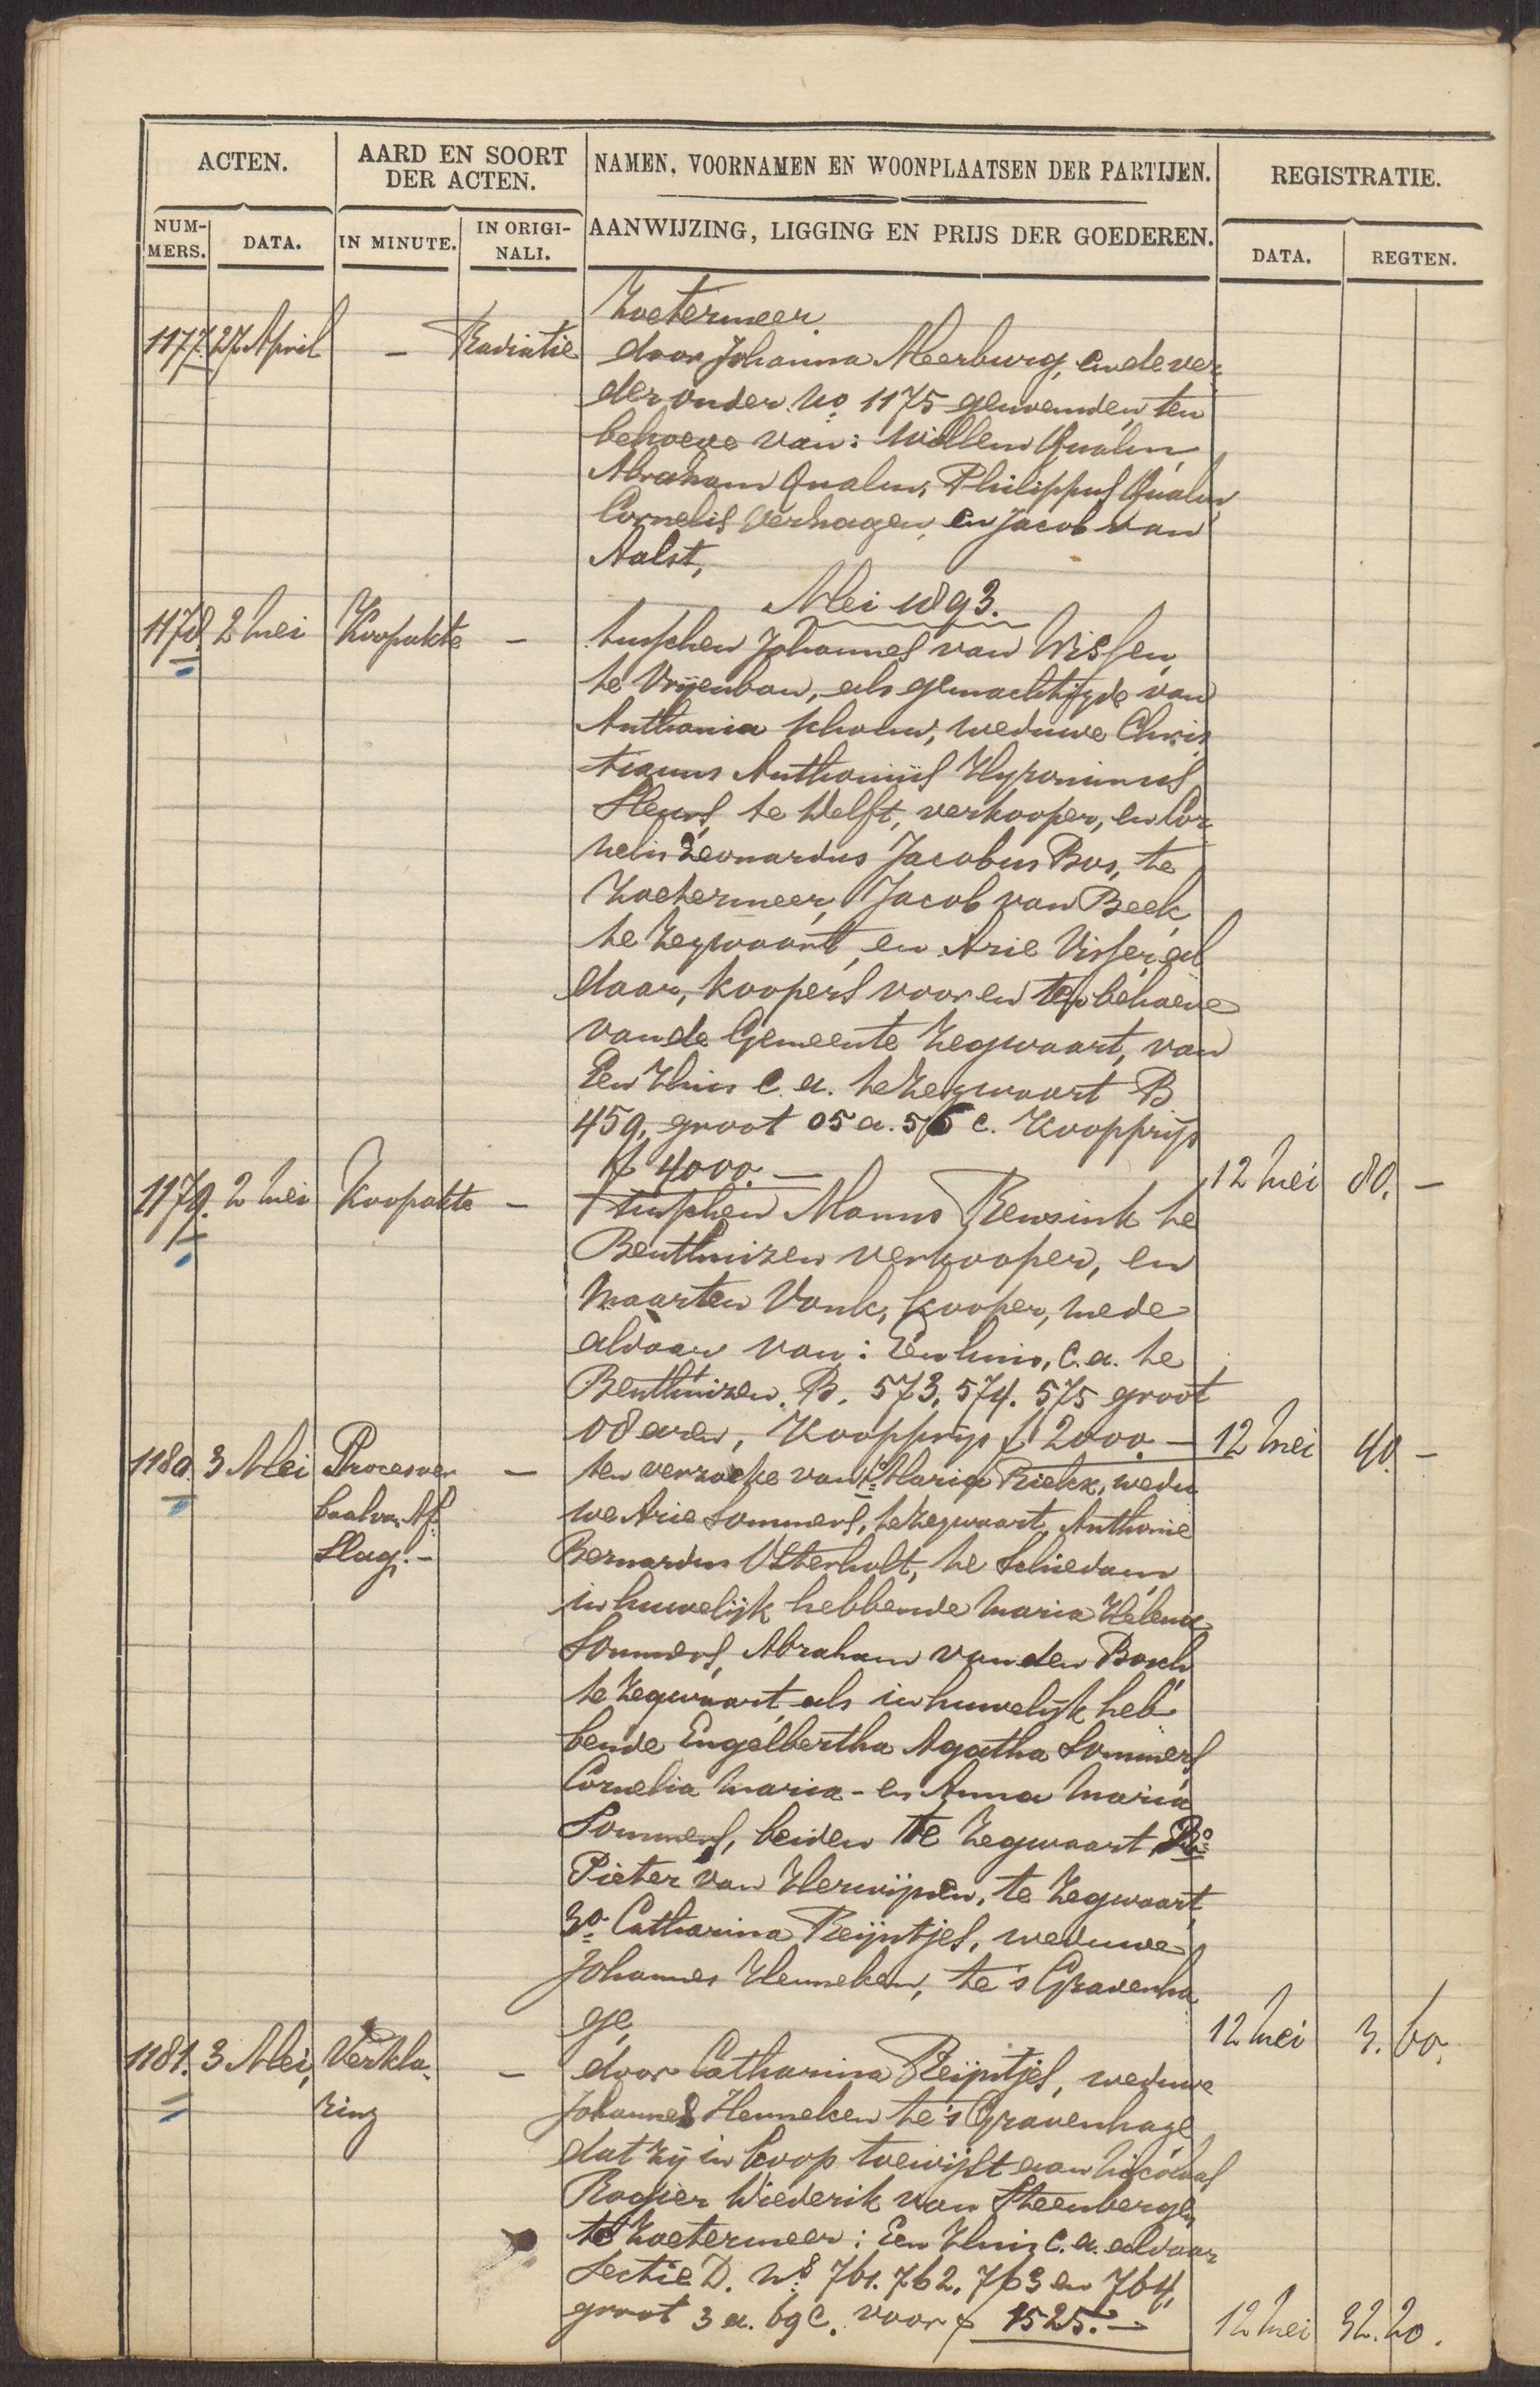 ACTEN.
AARD EN SOORT
DER ACTEN.
NAMEN, VOORNAMEN EN WOONPLAATSEN DER PARTIJEN.
REGISTRATIE.
NUM-
MERS.
DATA.
IN MINUTE.
IN ORIGI-
NALI.
AANWIJZING, LIGGING EN PRIJS DER GOEDEREN.
DATA.
REGTEN.
Zoetermeer.
1177. 27 April - Radiatie door Johanna Meerburg, en de ver
der onder No 1175 genoemden, ten
behoeve van: Willem Qualm,
Abraham Qualm, Philippus Qualm
Cornelis Verhagen, en Jacob van
Aalst,
Mei 1893.
1178. 2 Mei Koopakte - tusschen Johannes van Wissen,
te Vrijenban, als gemachtigde van
Anthonia weduwe Chris
tianus Anthonius Hyronimus
te Delft, verkooper, en Cor
nelis Leonardus Jacobus Bos, te
Zoetermeer, Jacob van Beek
te Zegwaart, en Arie Visser, al
daar, koopers voor en ten behoeve
van de Gemeente Zegwaart, van
Een Huis c.a. te Zegwaart B
459, groot 05 a. 56 c. Koopprijs
f 4000.- 12 Mei 80. -
1179. 2 Mei Koopakte - tusschen Manus Rensink te
Benthuizen verkooper, en
Maarten Vonk, kooper, mede
aldaar van: Een huis, c.a. te
Benthuizen. B. 573. 574. 575 groot
08 aren, Koopprijs f 2000.- 12 Mei 40. -
1180 3 Mei Procesver - ten verzoeke van 1o Maria Riekx, wedu
baal van Af we Arie Sommers, te Zegwaart, Anthonie
slag.- Bernardus Osterholt, te Schiedam,
in huwelijk hebbende Maria Helena
Sommers, Abraham van den Bosch
te Zegwaart, als in huwelijk heb
bende Engelbertha Agatha Sommers,
Cornelia Maria - en Anna Maria
Sommers, beiden te Zegwaart, 2o
Pieter van Herwijnen, te Zegwaart,
3o Catharina Reijntjes, weduwe
Johannes Henneken, te 's Gravenha
ge, 12 Mei 3. 60.
1181. 3 Mei, Verkla - door Catharina Reijntjes, weduwe
ring Johannes Henneken te 's Gravenhage
dat zij in koop toewijst aan Nicolaas
Rogier Diederik van Steenbergen,
te Zoetermeer: Een Huis c.a. aldaar
Sectie D. Ns 761. 762. 763 en 764,
groot 3 a. 69 c. voor f 1525.- 12 Mei 32. 20.